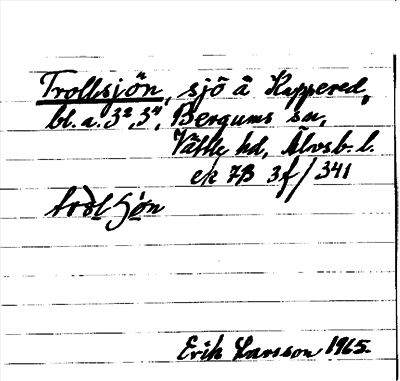 Trollsjön, sjö å Kappered,
bl.a. 3², 3⁴, Bergums sn,
Vättle hd, Älvsb. l.
ek 7B 3f/341
Erik Larsson 1965.